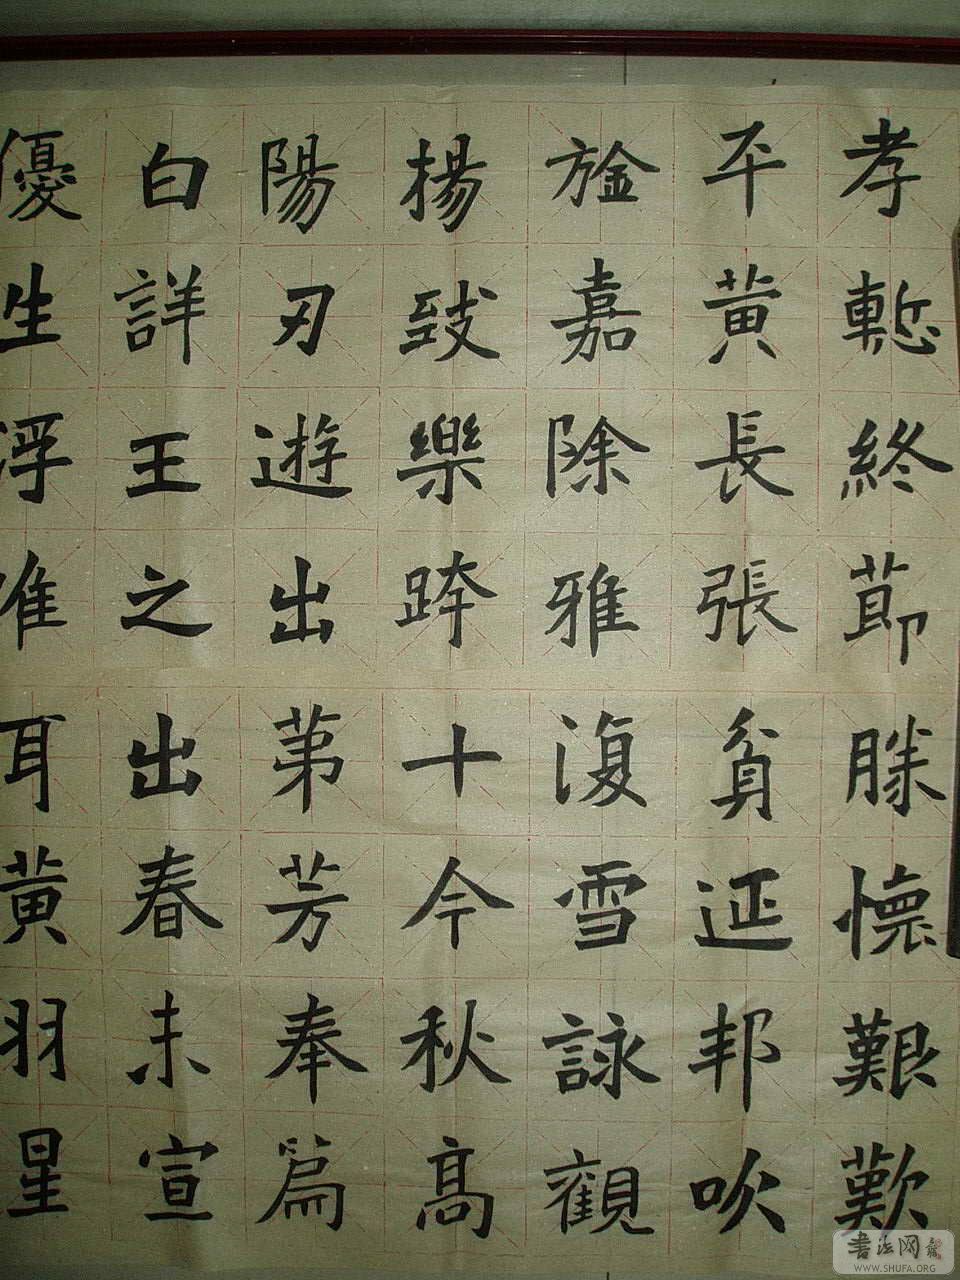 孝慙終莭懷艱歎
平黃長張貧延邦吹
嘉除雅復雪詠觀
揚致樂跨十今秋高
陽刃遊出第芳奉篇
白詳王之出春未宣
優生浮惟耳黃羽星
書法网
WWW.SHUFA.ORG